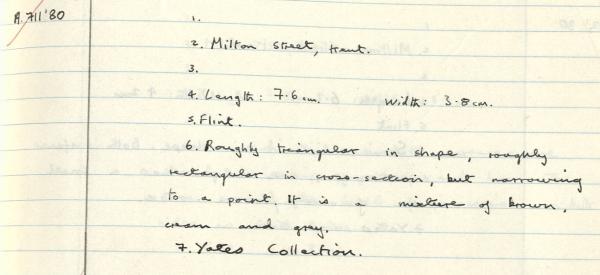 A.711'80
1.
2. Milton Street, Kent.
3.
4. Length: 7.6 cm. Width: 3.8 cm.
5. Flint.
6. Roughly triangular in shape, roughly
rectangular in cross-section, but narrowing
to a point. It is a mixture of brown,
cream and grey.
7. Yates Collection.